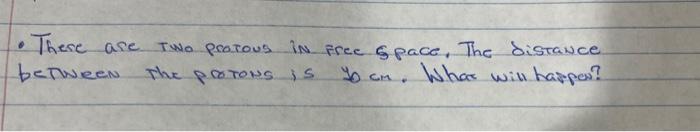 • There are Two protous in free space. The distance
between The protons is cm. What will happen?